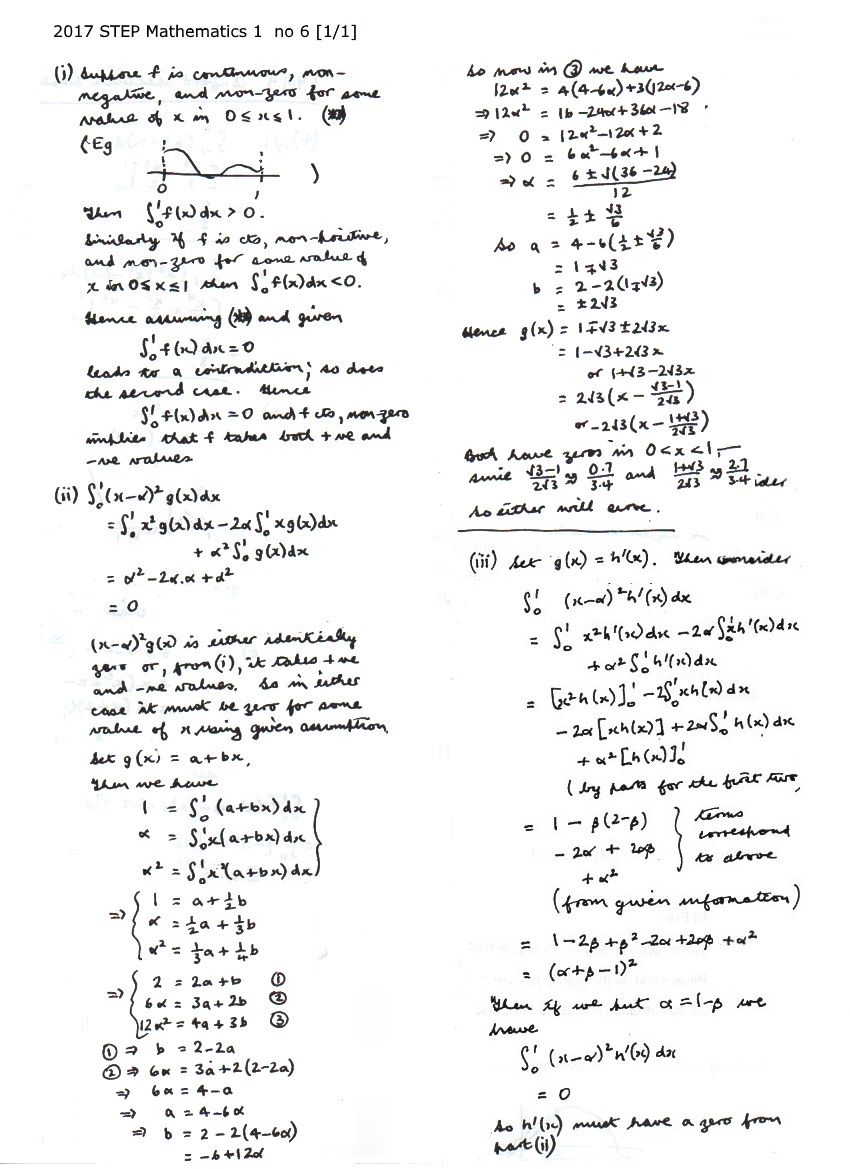 2017 STEP Mathematics 1 no 6 [1/1]
(i) Suppose f is continuous, non-
negative, and non-zero for some
value of x in 0 ≤ x ≤ 1. (**)
(Eg
0 1 )
Then ∫₀¹ f(x) dx > 0.
Similarly if f is cts, non-positive,
and non-zero for some value of
x in 0 ≤ x ≤ 1 then ∫₀¹ f(x) dx < 0.
Hence assuming (**) and given
∫₀¹ f(x) dx = 0
leads to a contradiction; so does
the second case. Hence
∫₀¹ f(x) dx = 0 and f cts, non-zero
implies that f takes both +ve and
-ve values
(ii) ∫₀¹ (x-α)² g(x) dx
= ∫₀¹ x² g(x) dx - 2α ∫₀¹ x g(x) dx
+ α² ∫₀¹ g(x) dx
= α² - 2α.α + α²
= 0
(x-α)² g(x) is either identically
zero or, from (i), it takes +ve
and -ve values. So in either
case it must be zero for some
value of x using given assumption.
Set g(x) = a + bx,
Then we have
1 = ∫₀¹ (a+bx) dx
α = ∫₀¹ x(a+bx) dx
α² = ∫₀¹ x²(a+bx) dx
⇒ 1 = a + ½b
α = ½a + ⅓b
α² = ⅓a + ¼b
⇒ 2 = 2a + b ①
6α = 3a + 2b ②
12α² = 4a + 3b ③
① ⇒ b = 2-2a
② ⇒ 6α = 3a + 2(2-2a)
⇒ 6α = 4-a
⇒ a = 4-6α
⇒ b = 2-2(4-6α)
= -6+12α
So now in ③ we have
12α² = 4(4-6α)+3(12α-6)
⇒ 12α² = 16-24α+36α-18
⇒ 0 = 12α²-12α+2
⇒ 0 = 6α²-6α+1
⇒ α = (6 ± √(36-24))/12
= ½ ± √3/6
So a = 4-6(½ ± √3/6)
= 1∓√3
b = 2-2(1∓√3)
= ±2√3
Hence g(x) = 1∓√3±2√3x
= 1-√3+2√3x
or 1+√3-2√3x
= 2√3(x - (√3-1)/2√3)
or -2√3(x - (1+√3)/2√3)
Both have zeros in 0<x<1,
since (√3-1)/2√3 ≈ 0.7/3.4 and (1+√3)/2√3 ≈ 2.7/3.4
so either will serve.
(iii) Set g(x) = h'(x). Then consider
∫₀¹ (x-α)² h'(x) dx
= ∫₀¹ x² h'(x) dx - 2α ∫₀¹ x h'(x) dx
+ α² ∫₀¹ h'(x) dx
= [x² h(x)]₀¹ - 2∫₀¹ x h(x) dx
- 2α [x h(x)] + 2α ∫₀¹ h(x) dx
+ α² [h(x)]₀¹
(by parts for the first two,
= 1 - β(2-β)
- 2α + 2αβ
+ α²
terms
correspond
to above
(from given information)
= 1-2β+β²-2α+2αβ+α²
= (α+β-1)²
Then if we put α = 1-β we
have
∫₀¹ (x-α)² h'(x) dx
= 0
So h'(x) must have a zero from
part (ii)